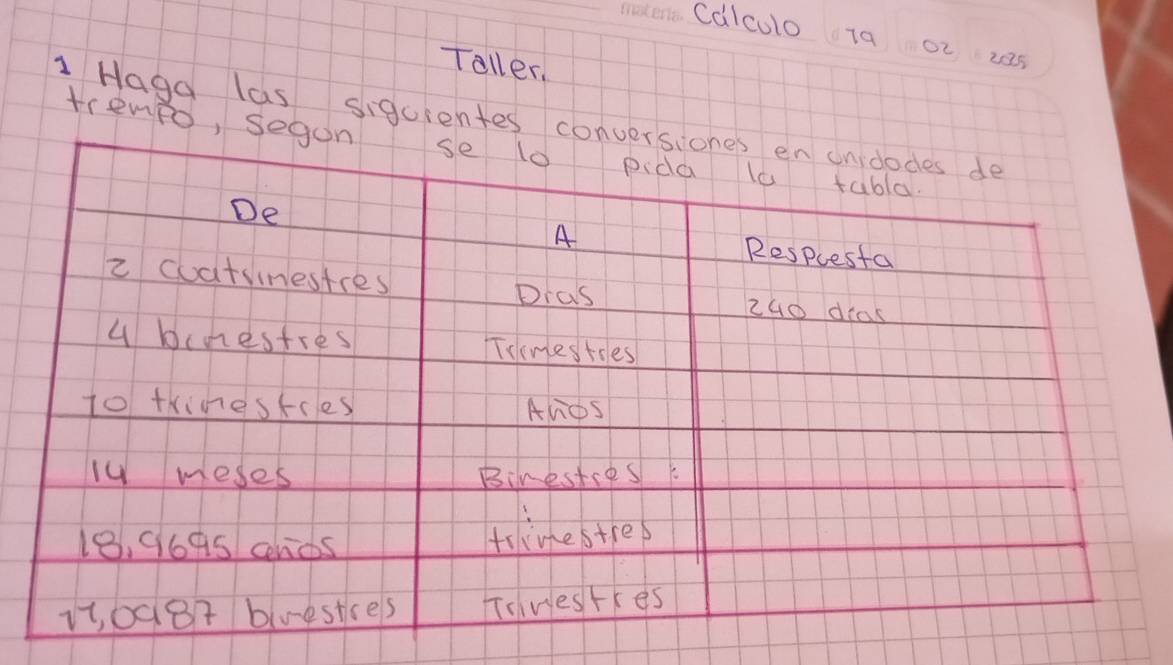 materia Cálculo 19 02 2025
Taller.
1 Haga las siguientes conversiones en unidades de
tiempo, segun se lo pida la tabla.
De A Respuesta
2 cuatrimestres Dias 240 dias
4 bimestres Trimestres
10 trimestres Años
14 meses Bimestres :
18,9695 años trimestres
bimestres Trimestres